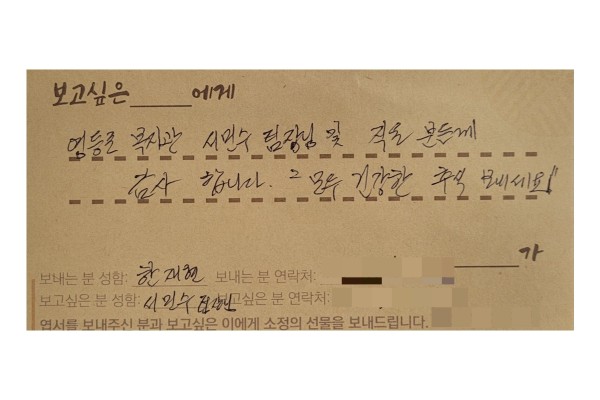 보고싶은 ______에게
영등포 복지관 서민수 팀장님 및 직원 분들께
감사 합니다. "모두 건강한 추석 보내세요"
______가
보내는 분 성함: 한재현 보내는 분 연락처:
보고싶은 분 성함: 서민수 팀장 보고싶은 분 연락처:
엽서를 보내주신 분과 보고싶은 이에게 소정의 선물을 보내드립니다.